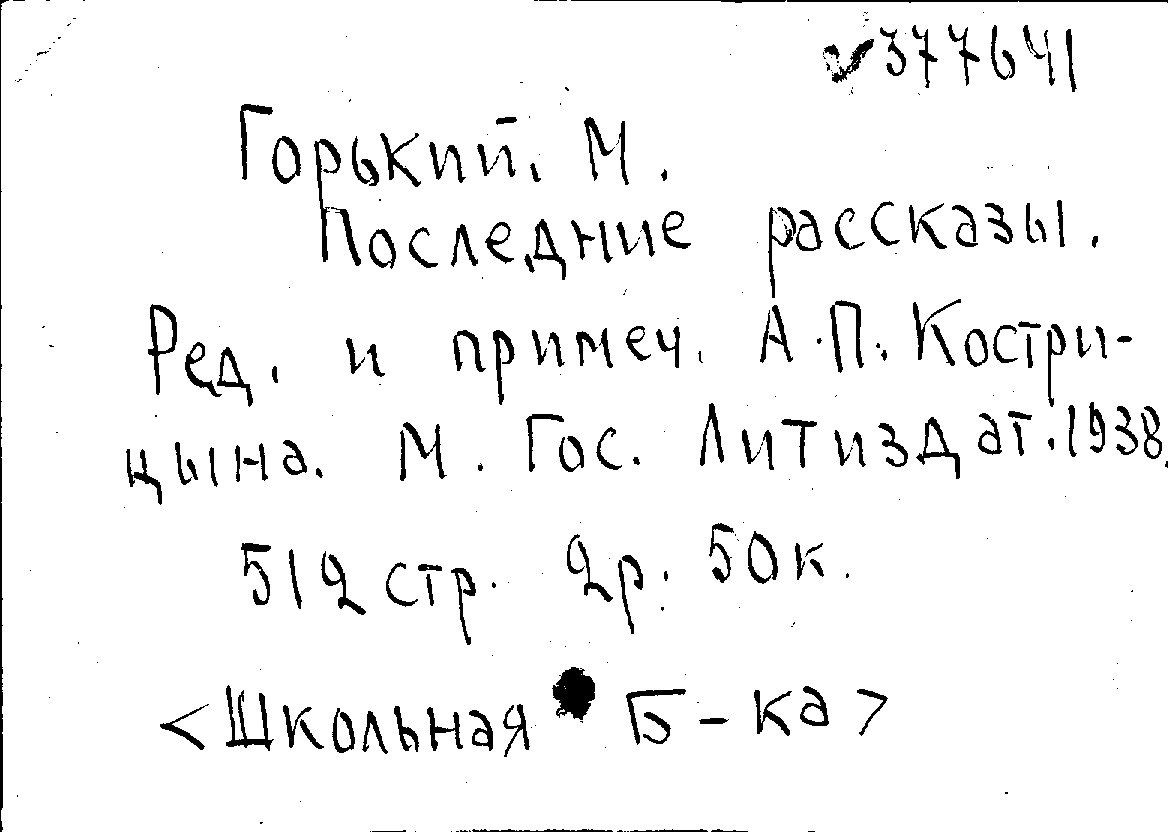 ✓377641
Горький. М.
Последние рассказы.
Ред. и примеч. А.П. Костри-
цына. М. Гос. Литиздат. 1938.
512 стр. 2р. 50к.
<Школьная Б-ка>